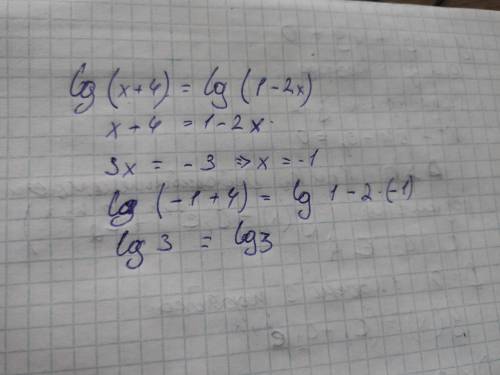 lg (x+4) = lg (1-2x)
x+4 = 1-2x.
3x = -3 ⇒ x = -1
lg (-1+4) = lg 1-2·(-1)
lg 3 = lg3